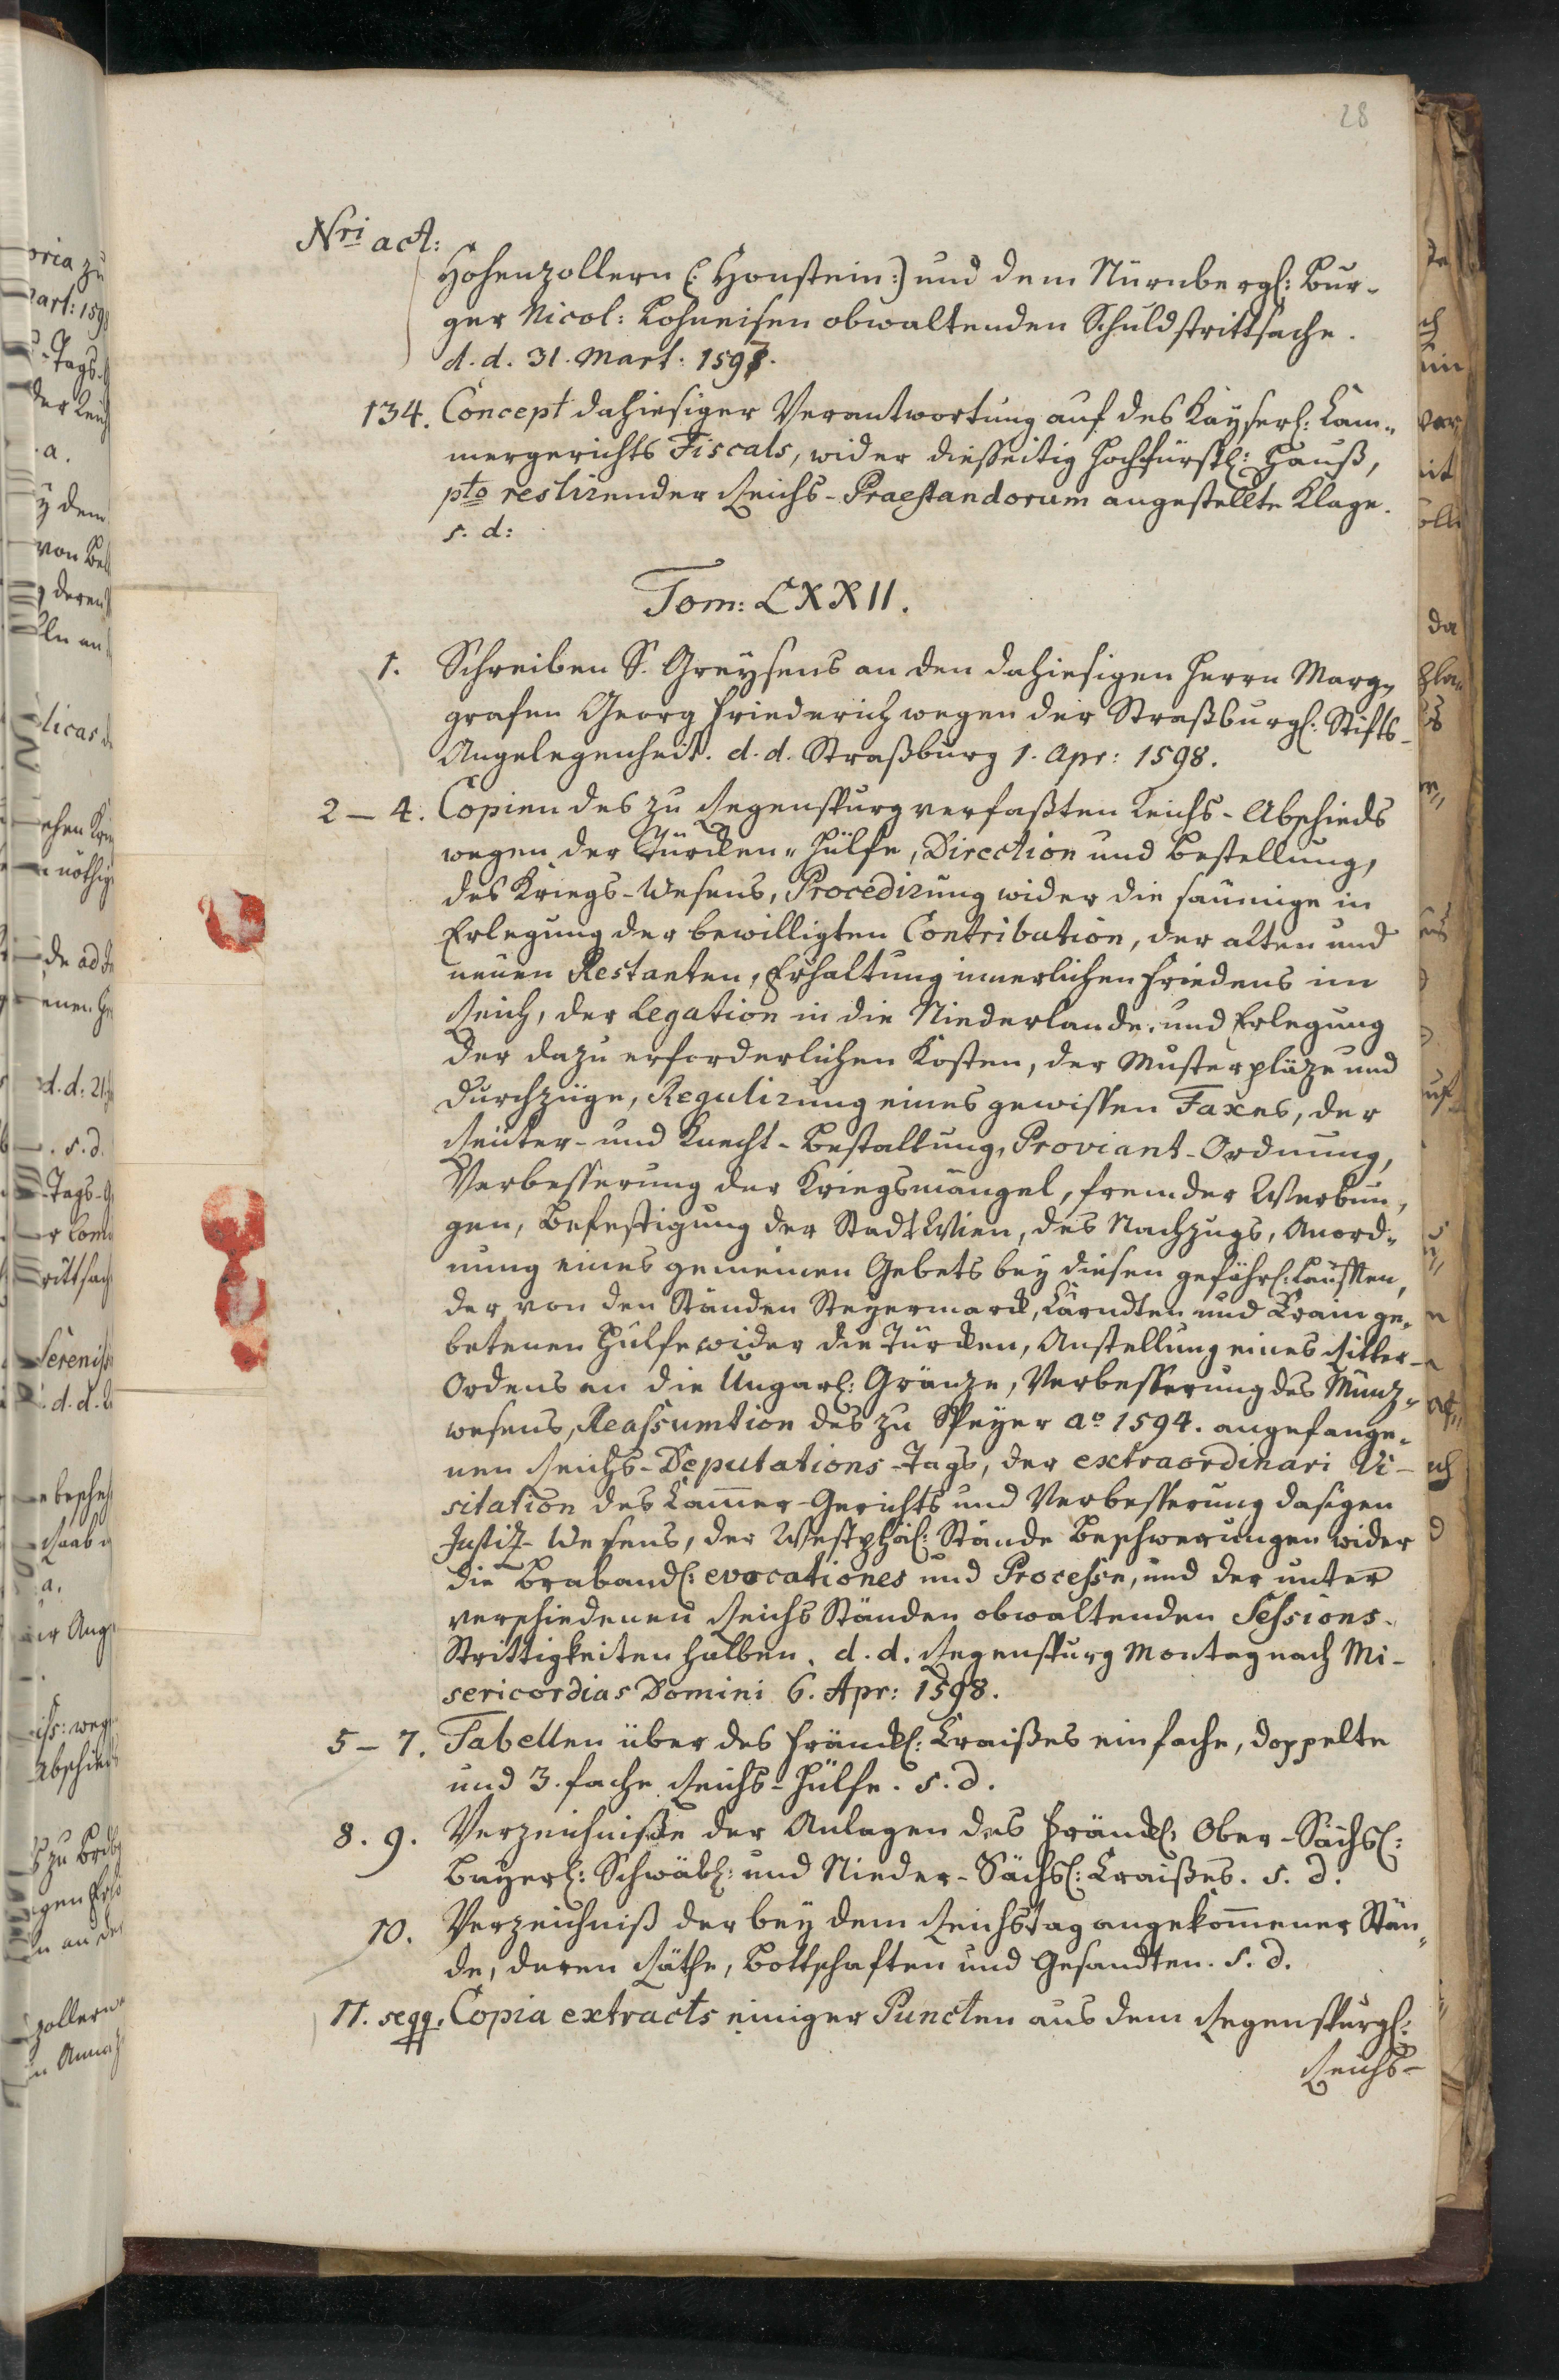 28
Nri act:
Hohenzollern (: Honstein:) und dem Nürnbergl: Bur-
ger Nicol: Lohneisen obwaltenden Schuldstrittsache.
d. d. 31. Mart: 1598.
134. Concept dahiesiger Verantwortung auf des Kayserl: Cam-
mergerichts Fiscals, wider diesseitig Hochfürstl: Hauß,
pto restirender Reichs-Praestandorum angestellte Klage.
s. d:
Tom: LXXII.
1. Schreiben S. Greysens an den dahiesigen Herrn Marg-
grafen Georg Friederich wegen der Straßburgl: Stifts-
Angelegenheit. d. d. Straßburg 1. Apr: 1598.
2 – 4. Copien des zu Regenspurg verfaßten Reichs-Abschieds
wegen der Türcken-Hülfe, Direction und Bestellung,
des Kriegs-Wesens, Procedirung wider die säumige in
Erlegung der bewilligten Contribution, der alten und
neuen Restanten, Erhaltung innerlichen Friedens im
Reich, der Legation in die Niederlande, und Erlegung
der dazu erforderlichen Kosten, der Musterpläze und
Durchzüge, Regulirung eines gewissen Taxes, der
Reuter- und Knecht-Bestallung, Proviant-Ordnung,
Verbesserung der Kriegsmängel, fremder Werbun-
gen, Befestigung der Stadt Wien, des Nachzugs, Anord-
nung eines gemeinen Gebets bey diesen gefährl: Läufften,
der von den Ständen Steyermarck, Cärndten und Crain ge-
betenen Hülfe wider die Türcken, Anstellung eines Ritter-
Ordens an die Ungarl: Gränze, Verbesserung des Münz-
wesens, Reassumtion des zu Speyer ao 1594. angefange-
nen Reichs-Deputations-Tags, der extraordinari Vi-
sitation des Cammer-Gerichts und Verbesserung dasigen
Justiz-Wesens, der Westphäl: Stände Beschwerungen wider
die Braband: evocationes und Processe, und der unter
verschiedenen Reichs Ständen obwaltenden Sessions-
Strittigkeiten halben. d. d. Regenspurg Montag nach Mi-
sericordias Domini 6. Apr: 1598.
5 – 7. Tabellen über des Fränckl: Craißes einfache, doppelte
und 3. fache Reichs-Hülfe. s. d.
8. 9. Verzeichniße der Anlagen des Fränckl: Ober-Sächsl:
Bayerl: Schwäbl: und Nieder-Sächsl: Craißes. s. d.
10. Verzeichniß der bey dem Reichstag angekommener Stän-
de, deren Räthe, Bottschaften und Gesandten. s. d.
11. seqq. Copia extracts einiger Puncten aus dem Regenspurgl:
Reichs-